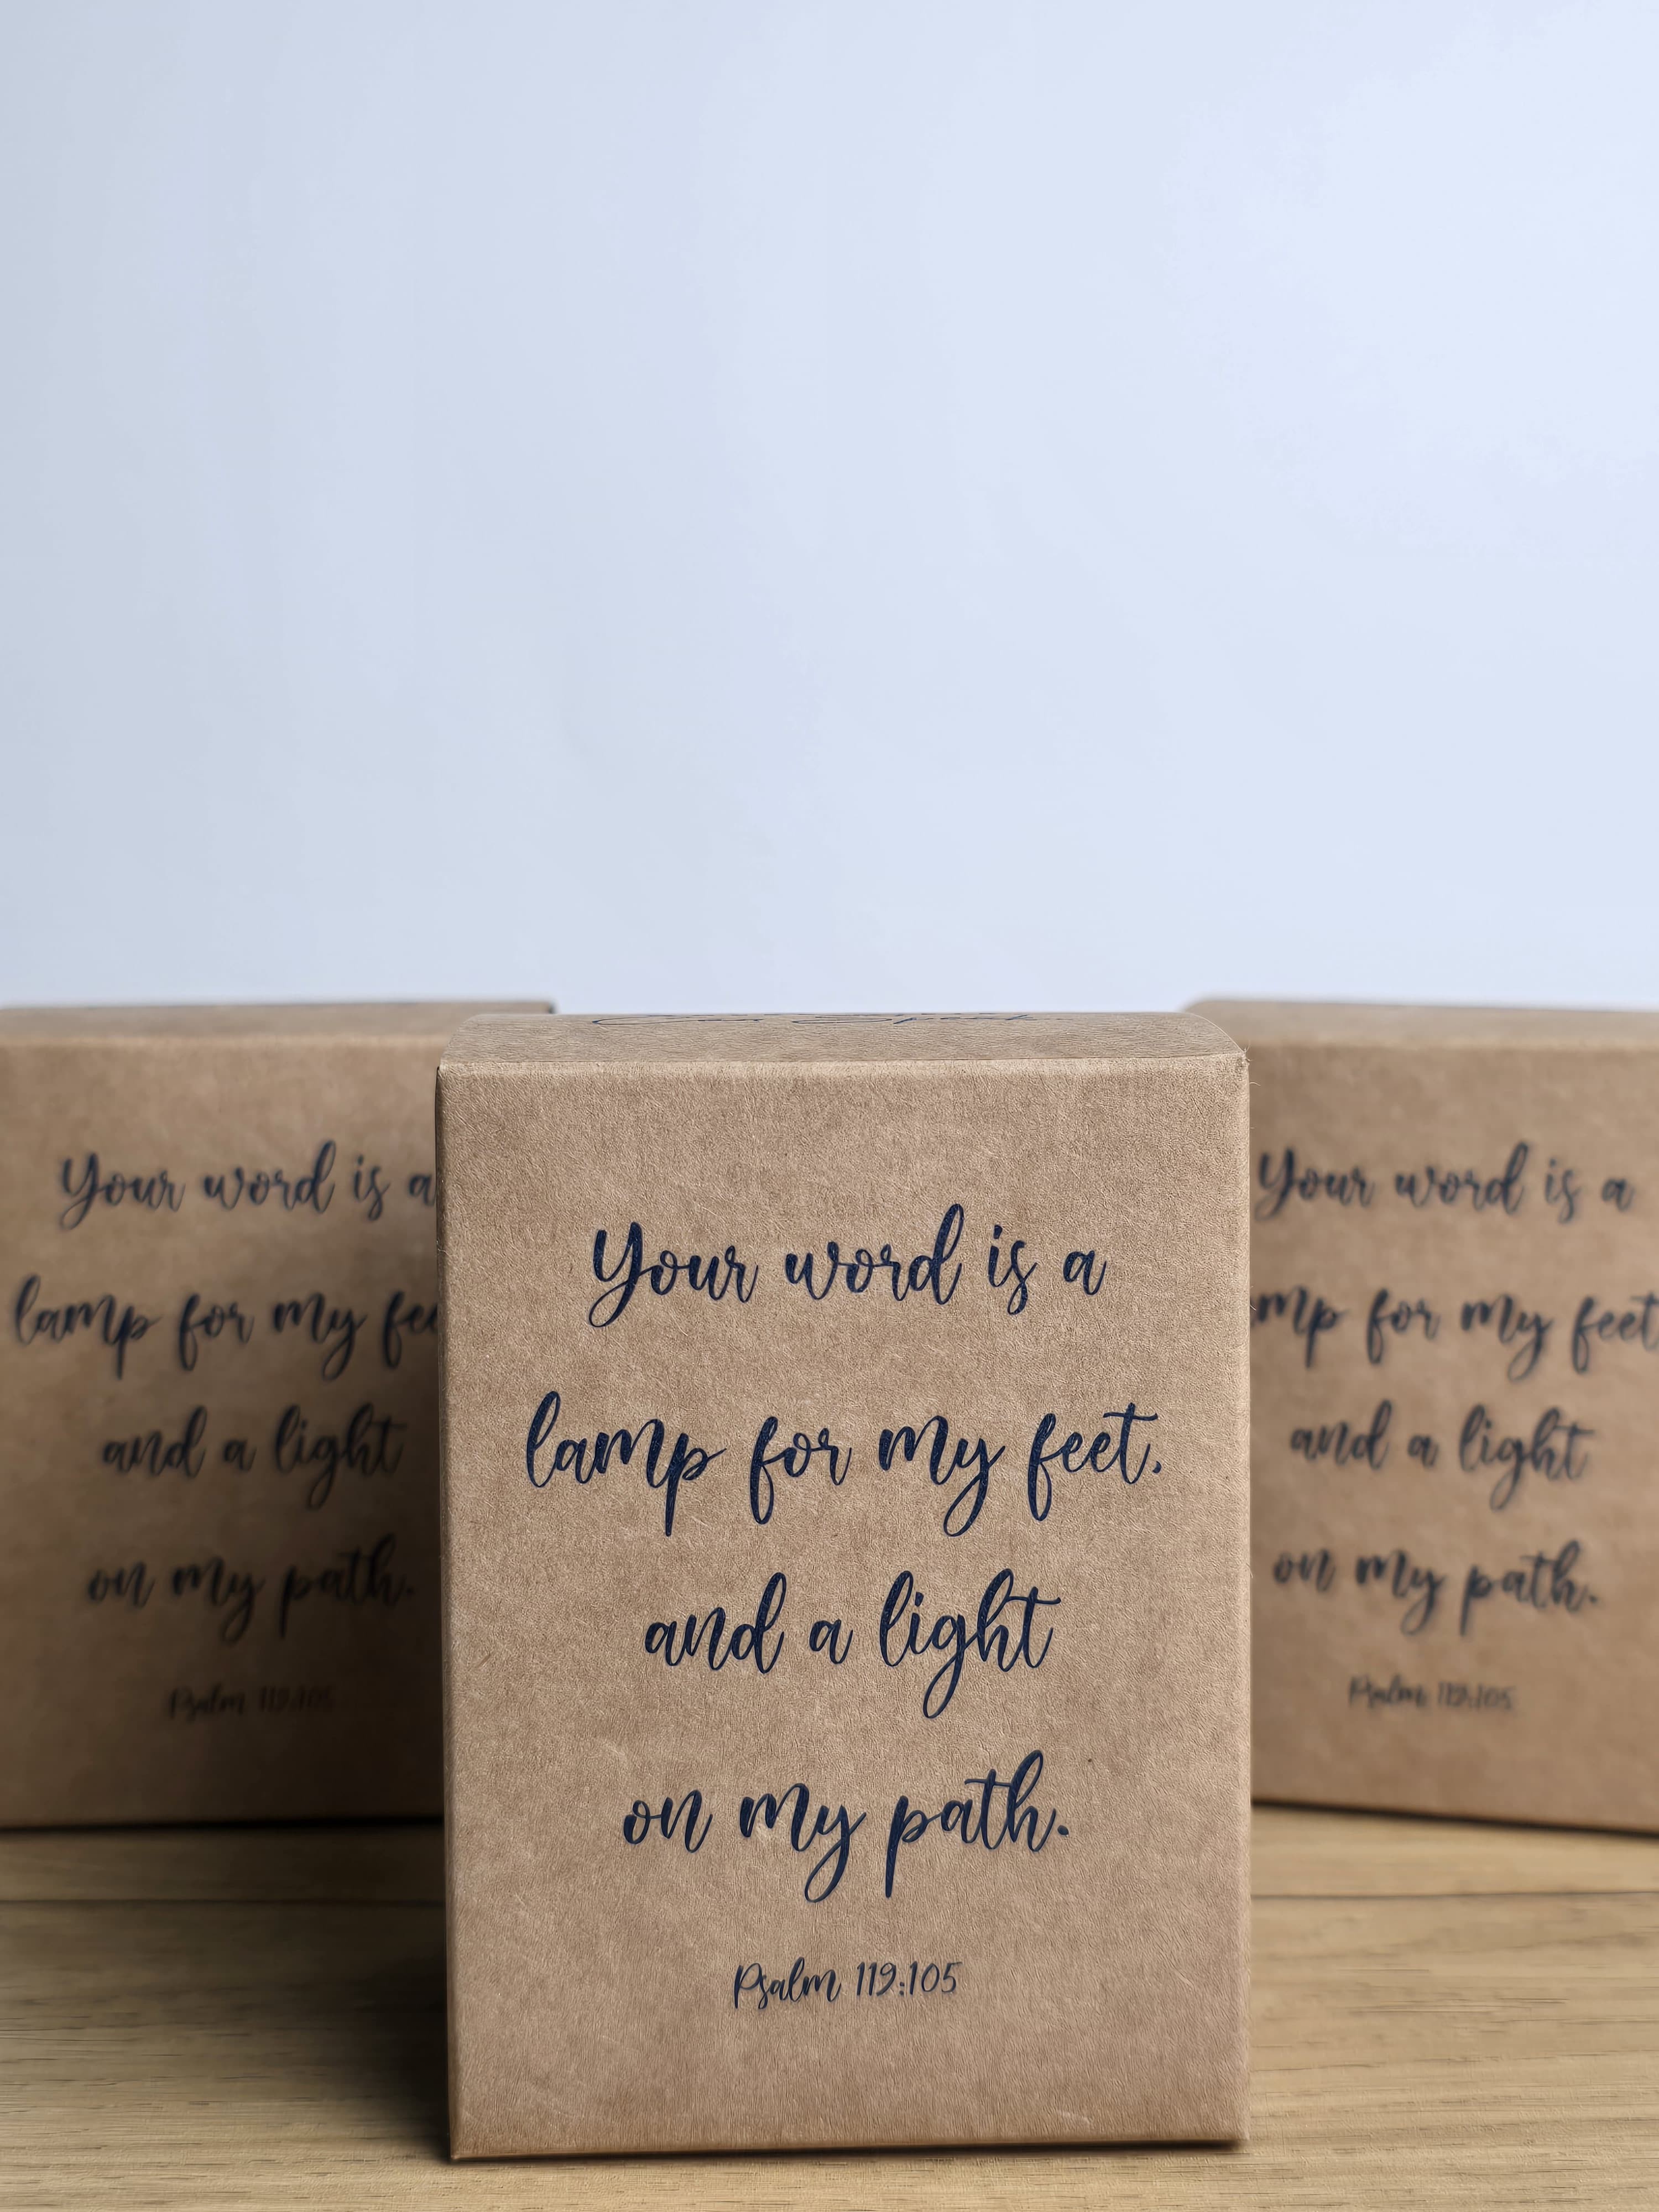 Your word is a
lamp for my feet,
and a light
on my path.
Psalm 119:105
Your word is a
lamp for my
and a light
on my path.
Psalm 119:105
Your word is a
for my feet,
and a light
on my path.
Psalm 119:105